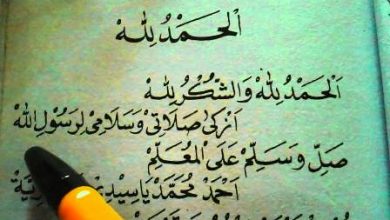 اَلْحَمْدُ لِلّٰهْ
اَلْحَمْدُ لِلّٰهْ وَالشُّكْرُ لِلّٰهْ
اَزْكٰى صَلَاتِىْ وَسَلَامِىْ لِرَسُوْلِ اللّٰهْ
صَلِّ وَسَلِّمْ عَلَى الْمُعَلِّمْ
اَحْمَدْ مُحَمَّدْ يَا سَيِّدِىْ